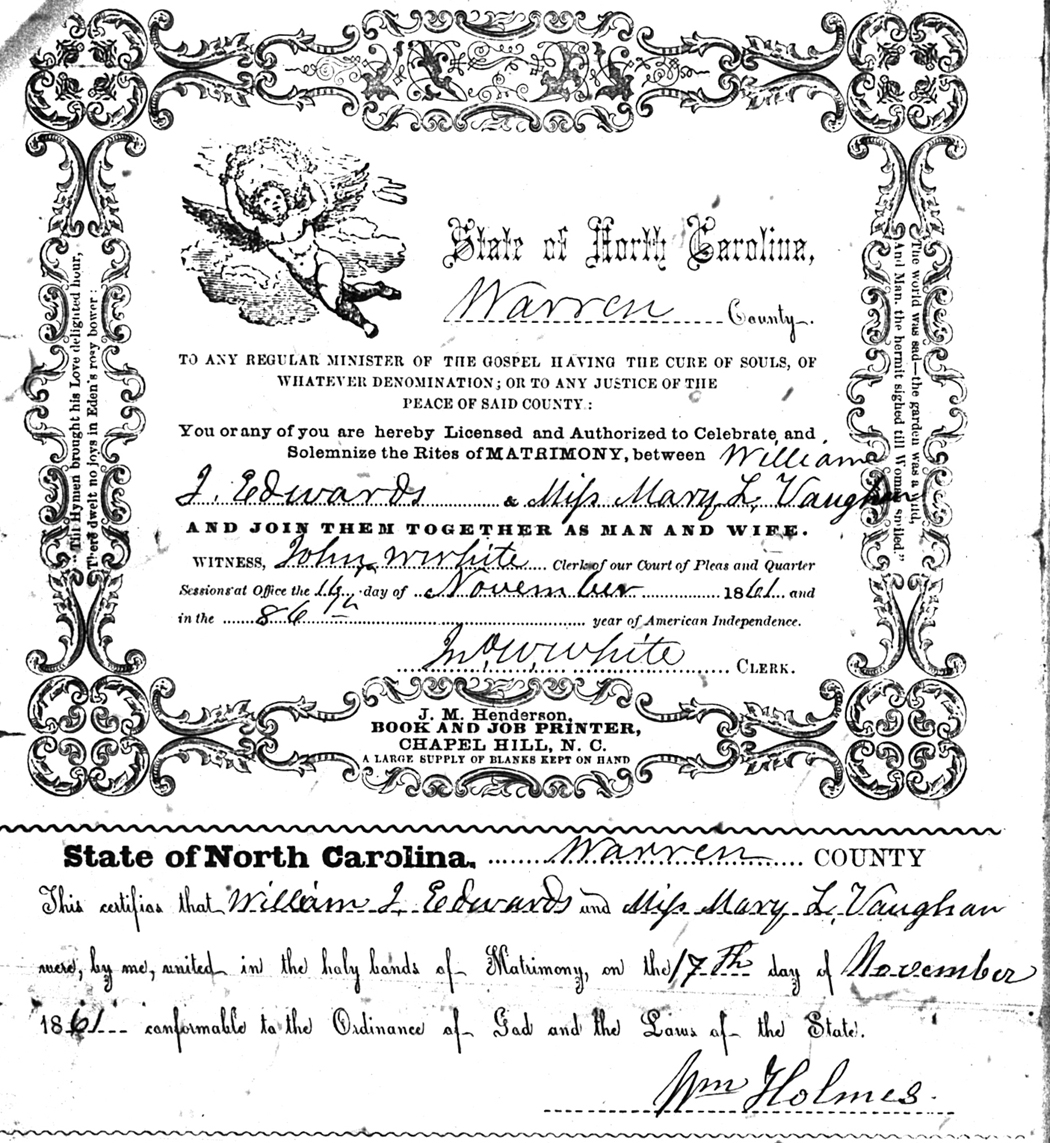 "Till Hymen brought his Love delighted hour,
There dwelt no joys in Eden's rosy bower:
State of North Carolina,
Warren County.
TO ANY REGULAR MINISTER OF THE GOSPEL HAVING THE CURE OF SOULS, OF
WHATEVER DENOMINATION; OR TO ANY JUSTICE OF THE
PEACE OF SAID COUNTY:
You or any of you are hereby Licensed and Authorized to Celebrate and
Solemnize the Rites of MATRIMONY, between William
J. Edwards & Miss Mary L. Vaughan
AND JOIN THEM TOGETHER AS MAN AND WIFE.
WITNESS, John W White Clerk of our Court of Pleas and Quarter
Sessions at Office the 16 day of November 1861 and
in the 86th year of American Independence.
Jno. W. White CLERK.
The world was sad—the garden was a wild,
And Man, the hermit sighed till Woman smiled."
J. M. Henderson,
BOOK AND JOB PRINTER,
CHAPEL HILL, N. C.
A LARGE SUPPLY OF BLANKS KEPT ON HAND
State of North Carolina, Warren COUNTY
This certifies that William J. Edwards and Miss Mary L. Vaughan
were, by me, united in the holy bands of Matrimony, on the 17th day of November
1861 conformable to the Ordinance of God and the Laws of the State.
Wm Holmes.